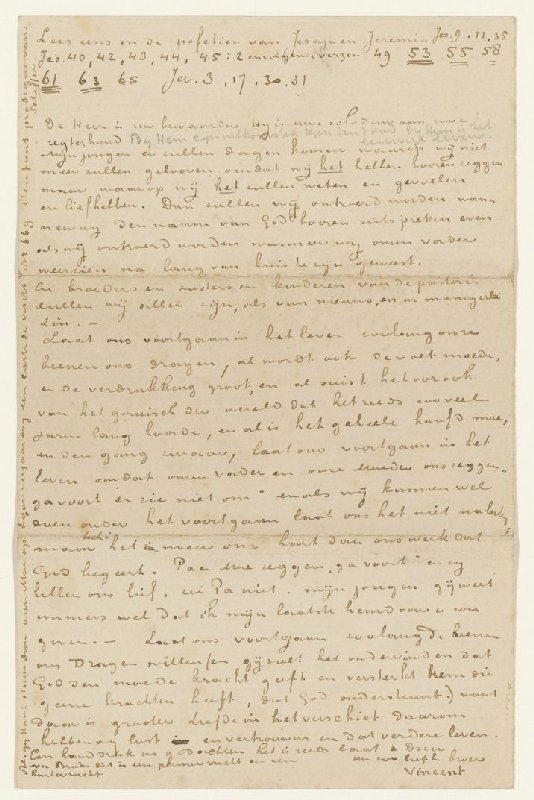 Lees eens en de profetien van Jesaja en Jeremia Jes. 9. 11, 35
Jes. 40, 42, 43, 44, 45:2 en volgende verzen 49 53 55 58
61 63 65 Jer. 3, 17, 30, 31
De Heer is uw bewaarder, Hij is uwe schaduw aan uwe
regterhand By Hem zijn uitkomsten tegen den dood by Hem is het
Mijn jongen er zullen dagen komen waarop wij niet
meer zullen gelooven omdat wij het hebben hooren zeggen
maar waarop wij het zullen weten en gevoelen
en liefhebben. Dan zullen wij ontroerd worden wan-
neer wij den naam van God hooren uitspreken even
als wij ontroerd worden wanneer wij onzen vader
weerzien na lang van huis te zijn geweest.
En broeders en zusters en kinderen van de pastorie
zullen wij allen zijn, als van nieuws, en in menigerlei
zin. —
Laat ons voortgaan in het leven zoolang onze
beenen ons dragen, al wordt ook de voet moede,
en de verdrukking groot, en al suist het oor ook
van het gedruisch der wereld dat het reeds zooveel
jaren lang hoorde, en al is het geheele hoofd moe,
en den gang zwaar, laat ons voortgaan in het
leven omdat onzen vader en onze moeder ons zeggen
"ga voort er zie niet om" en als wij kunnen wel
even onder het voortgaan laat ons het niet nalaten
maar het is meer ons hart dan ons werk dat
God begeert. Pa en Moe zeggen "ga voort" en wij
hebben ons lief, wie Pa niet. mijn jongen gij weet
immers wel dat ik mijn laatste hemd voor u zou
geven. — Laat ons voortgaan zoolang de beenen
ons dragen willen en gij zult het ondervinden dat
God den moede kracht geeft en versterkt hem die
geene krachten heeft, dat God ondersteunt) want
daar is groote liefde in het verschiet daarom
hebben wij lust en vertrouwen en dat verdere leven.
Een handdruk in gedachten het is reeds laat à Dieu
en zoo liefh. broer
Vincent